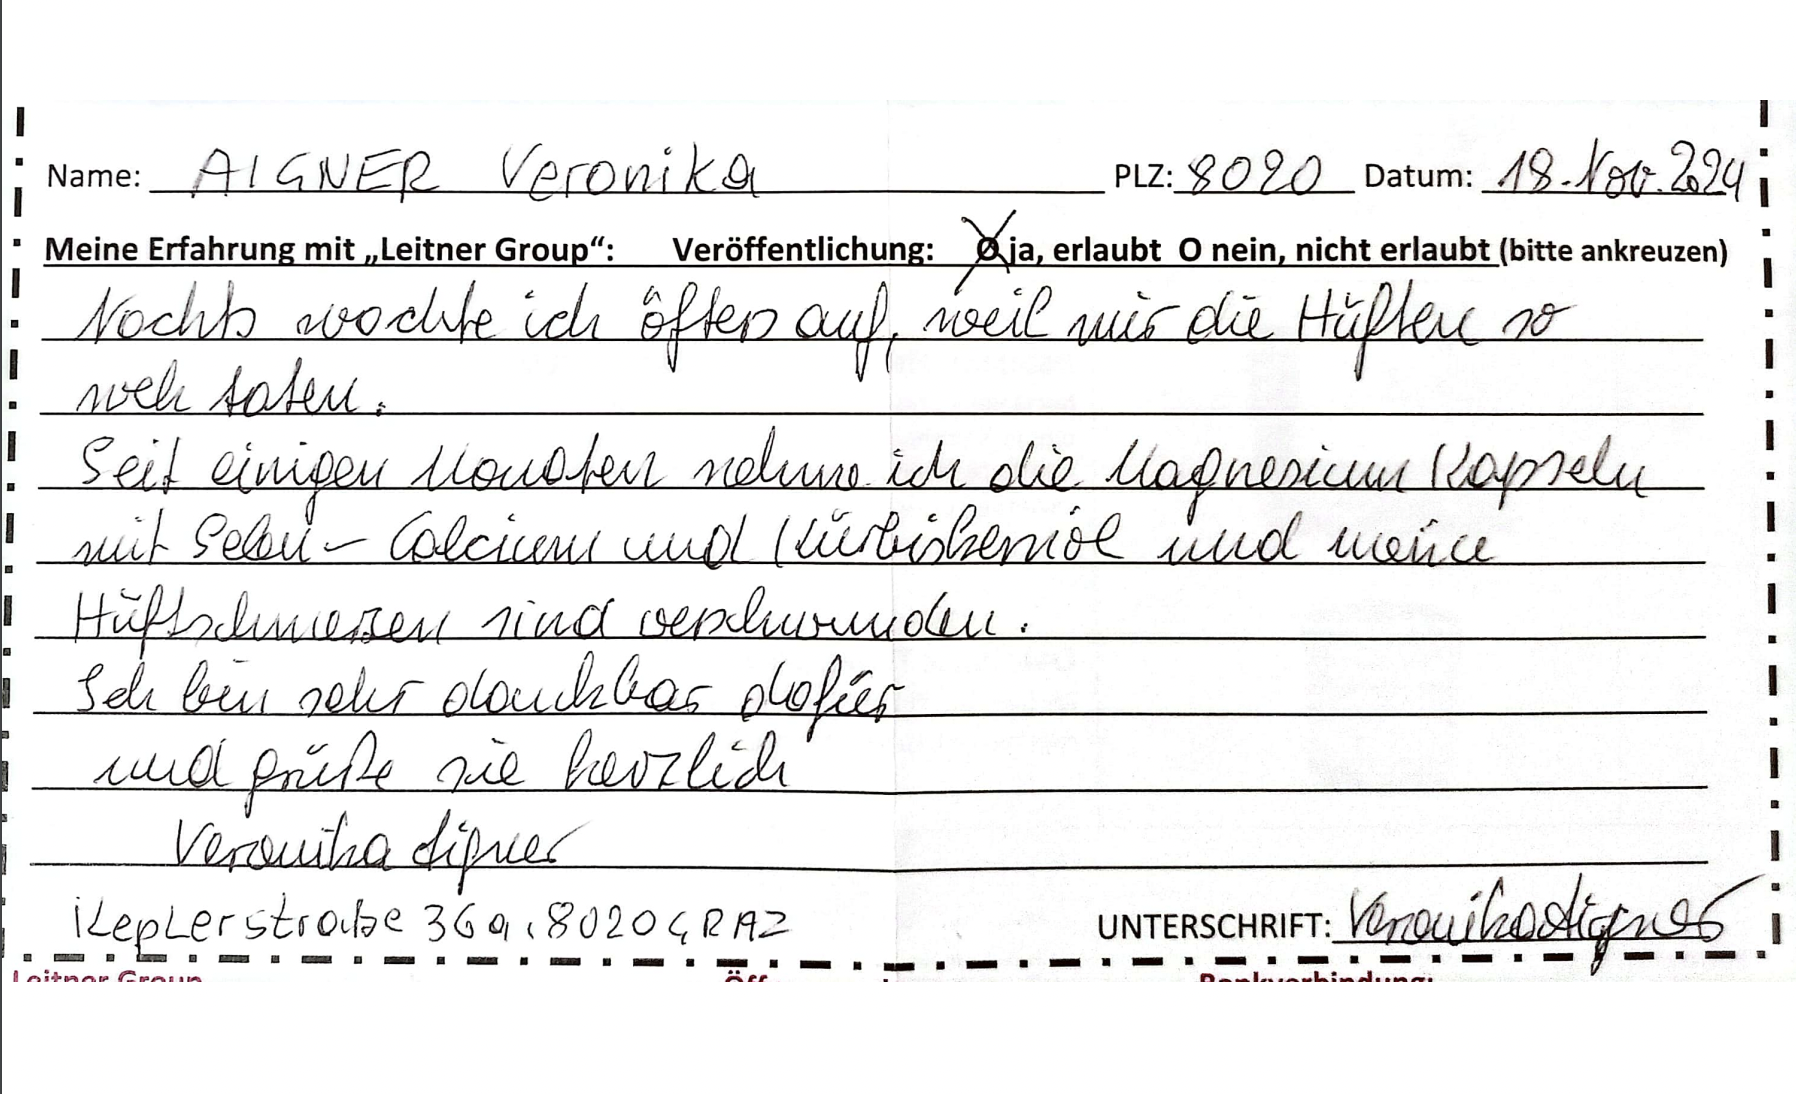 Name: AIGNER Veronika PLZ: 8020 Datum: 18. Nov. 2024
Meine Erfahrung mit „Leitner Group“: Veröffentlichung: O ja, erlaubt O nein, nicht erlaubt (bitte ankreuzen)
Nachts wachte ich öfters auf, weil mir die Hüften so
weh taten.
Seit einigen Monaten nehme ich die Magnesium Kapseln
mit Selen-Calcium und Kürbiskernöl und meine
Hüftschmerzen sind verschwunden.
Ich bin sehr dankbar dafür
und grüße sie herzlich
Veronika Aigner
Keplerstraße 36a, 8020 GRAZ UNTERSCHRIFT: Veronika Aigner
Leitner Group Bankverbindung: